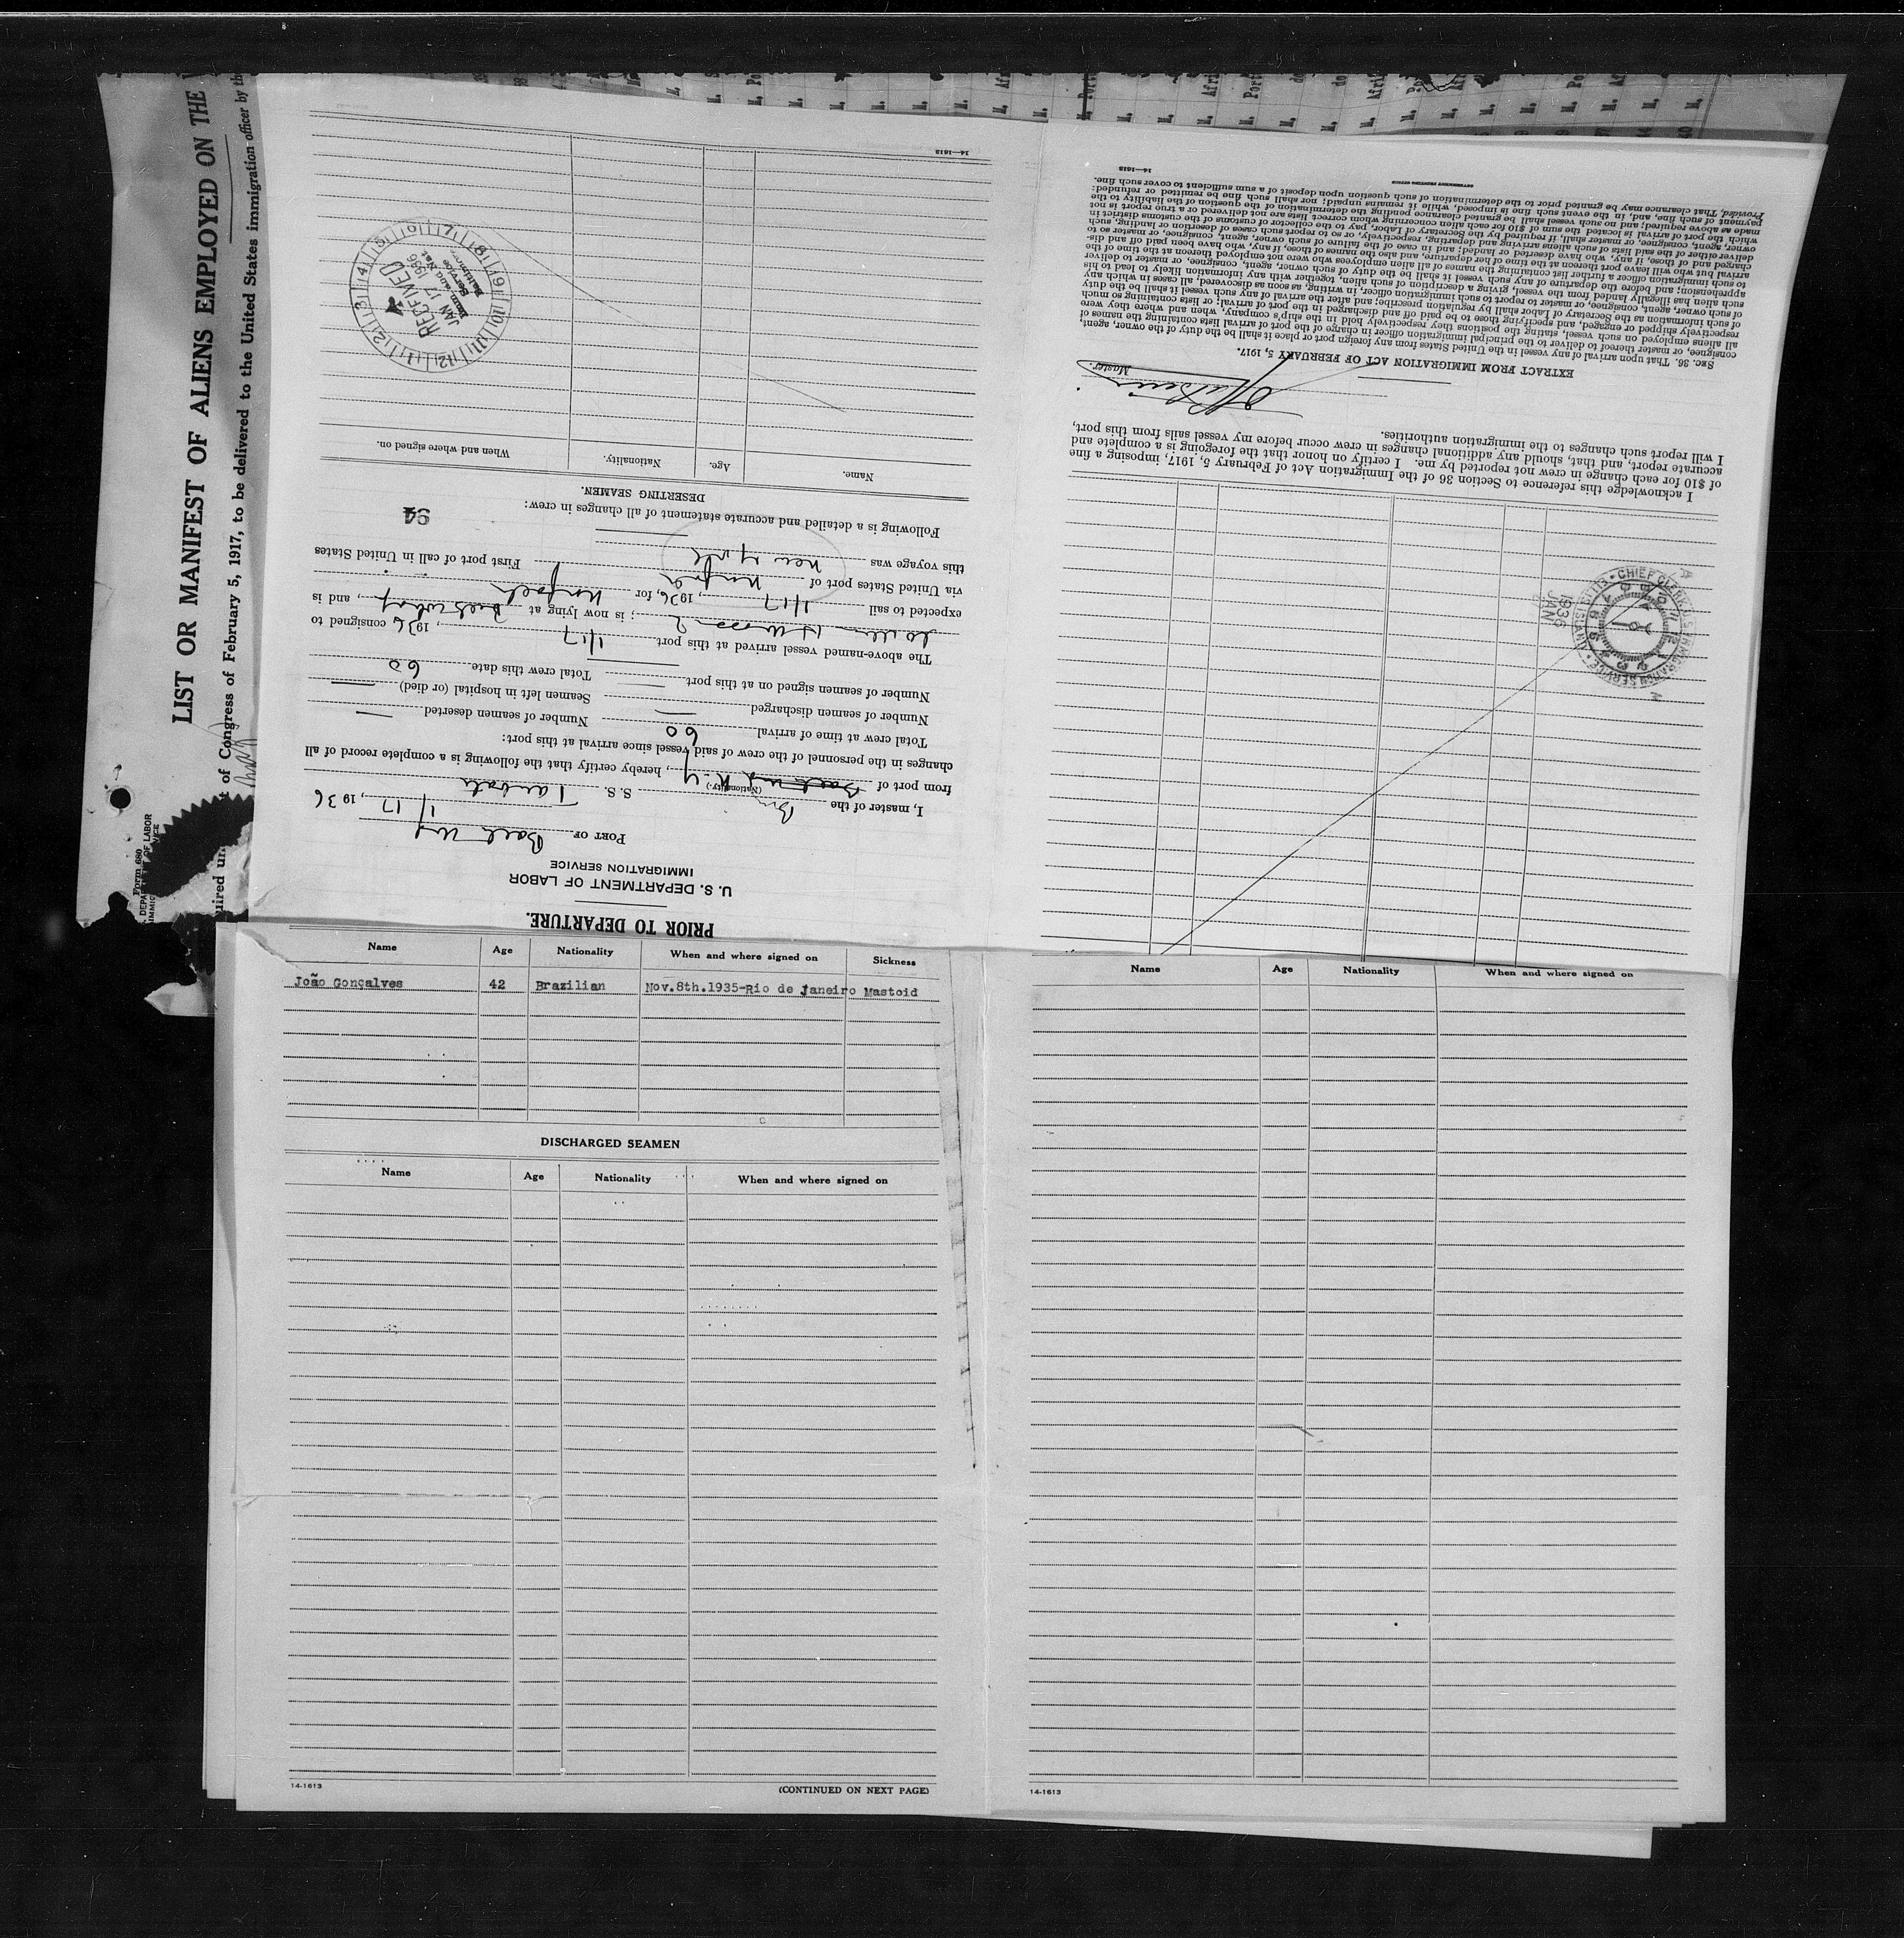 LIST OR MANIFEST OF ALIENS EMPLOYED ON THE
of Congress of February 5, 1917, to be delivered to the United States immigration officer by the
Form 680
DEPARTMENT OF LABOR
PRIOR TO DEPARTURE.
U. S. DEPARTMENT OF LABOR
IMMIGRATION SERVICE
PORT OF Balt Md 1/17, 1936
I, master of the Br S. S.
(Nationality.)
from port of N.Y, hereby certify that the following is a complete record of all
changes in the personnel of the crew of said vessel since arrival at this port:
Total crew at time of arrival 60 Number of seamen deserted —
Number of seamen discharged — Seamen left in hospital (or died) —
Number of seamen signed on at this port — Total crew this date 60
The above-named vessel arrived at this port 1/17, 1936 consigned to
; is now lying at, and is
expected to sail 1/17, 1936, for Norfolk
via United States port of Norfolk First port of call in United States
this voyage was New York
94
Following is a detailed and accurate statement of all changes in crew:
DESERTING SEAMEN.
Name. Age. Nationality. When and where signed on.
RECEIVED
JAN 17 1936
14—1613
I acknowledge this reference to Section 36 of the Immigration Act of February 5, 1917, imposing a fine
of $10 for each change in crew not reported by me. I certify on honor that the foregoing is a complete and
accurate report, and that, should any additional changes in crew occur before my vessel sails from this port,
I will report such changes to the immigration authorities.
Master.
EXTRACT FROM IMMIGRATION ACT OF FEBRUARY 5, 1917.
SEC. 36. That upon arrival of any vessel in the United States from any foreign port or place it shall be the duty of the owner, agent,
consignee, or master thereof to deliver to the principal immigration officer in charge of the port of arrival lists containing the names of
all aliens employed on such vessel, stating the positions they respectively hold in the ship's company, when and where they were
respectively shipped or engaged, and specifying those to be paid off and discharged in the port of arrival; or lists containing so much
of such information as the Secretary of Labor shall by regulation prescribe; and after the arrival of any such vessel it shall be the duty
of such owner, agent, consignee, or master to report to such immigration officer, in writing, as soon as discovered, all cases in which any
such alien has illegally landed from the vessel, giving a description of such alien, together with any information likely to lead to his
apprehension; and before the departure of any such vessel it shall be the duty of such owner, agent, consignee, or master to deliver
to such immigration officer a further list containing the names of all alien employees who were not employed thereon at the time of the
arrival but who will leave port thereon at the time of her departure, and also the names of those, if any, who have been paid off and dis-
charged and of those, if any, who have deserted or landed; and in case of the failure of such owner, agent, consignee, or master so to
deliver either of the said lists of such aliens arriving and departing, respectively, or so to report such cases of desertion or landing, such
owner, agent, consignee, or master shall, if required by the Secretary of Labor, pay to the collector of customs of the customs district in
which the port of arrival is located the sum of $10 for each alien concerning whom correct lists are not delivered or a true report is not
made as above required; and no such vessel shall be granted clearance pending the determination of the question of the liability to the
payment of such fine, and, in the event such fine is imposed, while it remains unpaid; nor shall such fine be remitted or refunded:
Provided, That clearance may be granted prior to the determination of such question upon deposit of a sum sufficient to cover such fine.
GOVERNMENT PRINTING OFFICE
14—1613
CHIEF CLERK'S
IMMIGRATION SERVICE
JAN
1936
Name Age Nationality When and where signed on Sickness
João Gonçalves 42 Brazilian Nov.8th.1935-Rio de Janeiro Mastoid
DISCHARGED SEAMEN
Name Age Nationality When and where signed on
14-1613
(CONTINUED ON NEXT PAGE)
Name Age Nationality When and where signed on
14-1613